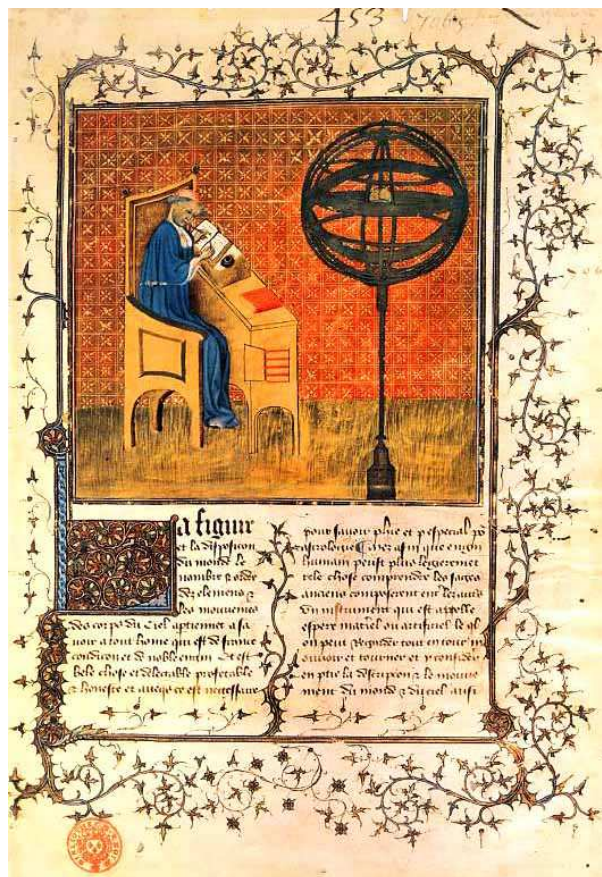 453 7065
a figure
et la disposicion
du monde le
nombre & ordre
des elemens &
les mouvemens
des corps du Ciel aptiennet a sa
voir a tout home qui est de franc
condicion et de noble engin Et est
bele chose et delectable profetable
& honeste et avecqs ce est necessaire
pour savoir phie et p especial po
astrologie afin que engin
humain peust plus legieremet
tele chose comprendre les sages
anciens composerent
Un instrument qui est appelle
espere materiel ou artificiel le ql
on peut regarder tout entour m
ouvoir et tourner et y considerer
en ptie la descripcion & le mouve
ment du monde & du ciel aussi